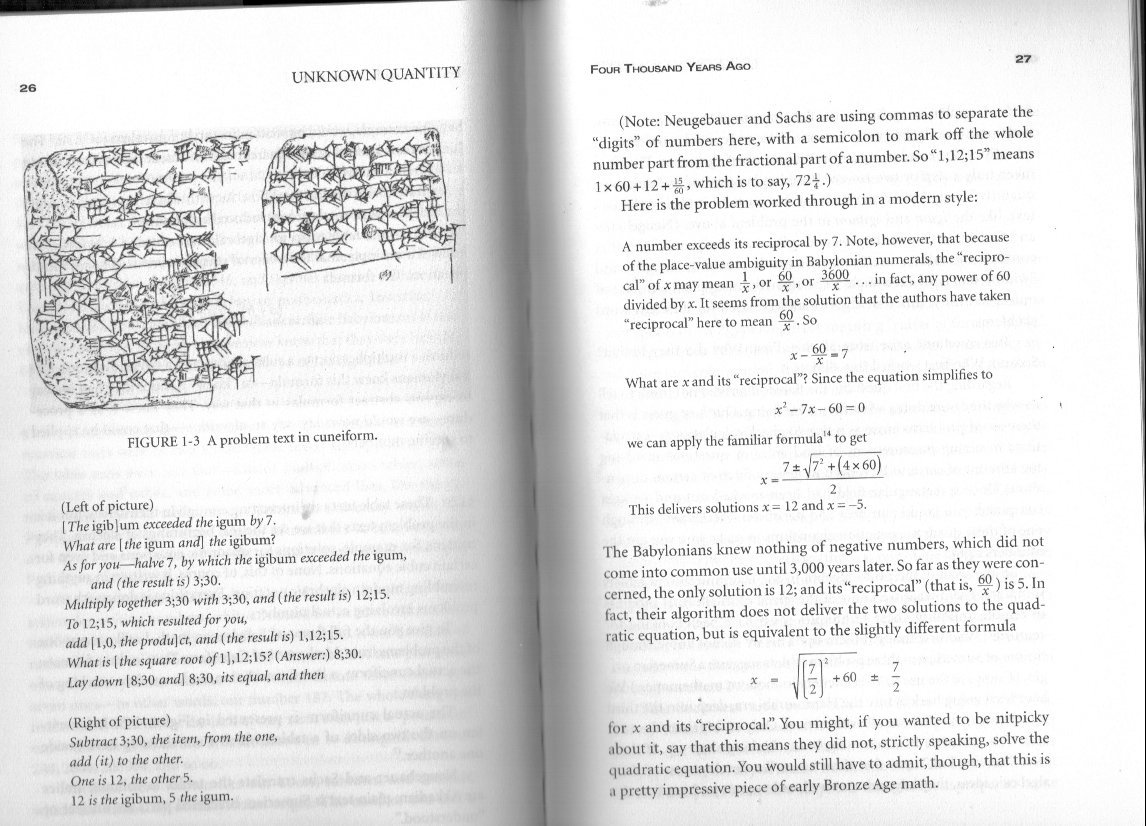 26
UNKNOWN QUANTITY
FIGURE 1-3 A problem text in cuneiform.
(Left of picture)
[The igib]um exceeded the igum by 7.
What are [the igum and] the igibum?
As for you—halve 7, by which the igibum exceeded the igum,
and (the result is) 3;30.
Multiply together 3;30 with 3;30, and (the result is) 12;15.
To 12;15, which resulted for you,
add [1,0, the produ]ct, and (the result is) 1,12;15.
What is [the square root of 1],12;15? (Answer:) 8;30.
Lay down [8;30 and] 8;30, its equal, and then
(Right of picture)
Subtract 3;30, the item, from the one,
add (it) to the other.
One is 12, the other 5.
12 is the igibum, 5 the igum.
FOUR THOUSAND YEARS AGO
27
(Note: Neugebauer and Sachs are using commas to separate the
“digits” of numbers here, with a semicolon to mark off the whole
number part from the fractional part of a number. So “1,12;15” means
1 × 60 + 12 + 15/60, which is to say, 72 1/4.)
Here is the problem worked through in a modern style:
A number exceeds its reciprocal by 7. Note, however, that because
of the place-value ambiguity in Babylonian numerals, the “recipro-
cal” of x may mean 1/x, or 60/x, or 3600/x ... in fact, any power of 60
divided by x. It seems from the solution that the authors have taken
“reciprocal” here to mean 60/x. So
x − 60/x = 7
What are x and its “reciprocal”? Since the equation simplifies to
x² − 7x − 60 = 0
we can apply the familiar formula¹⁴ to get
x = (7 ± √(7² + (4 × 60)))/2
This delivers solutions x = 12 and x = −5.
The Babylonians knew nothing of negative numbers, which did not
come into common use until 3,000 years later. So far as they were con-
cerned, the only solution is 12; and its “reciprocal” (that is, 60/x) is 5. In
fact, their algorithm does not deliver the two solutions to the quad-
ratic equation, but is equivalent to the slightly different formula
x = √((7/2)² + 60) ± 7/2
for x and its “reciprocal.” You might, if you wanted to be nitpicky
about it, say that this means they did not, strictly speaking, solve the
quadratic equation. You would still have to admit, though, that this is
a pretty impressive piece of early Bronze Age math.